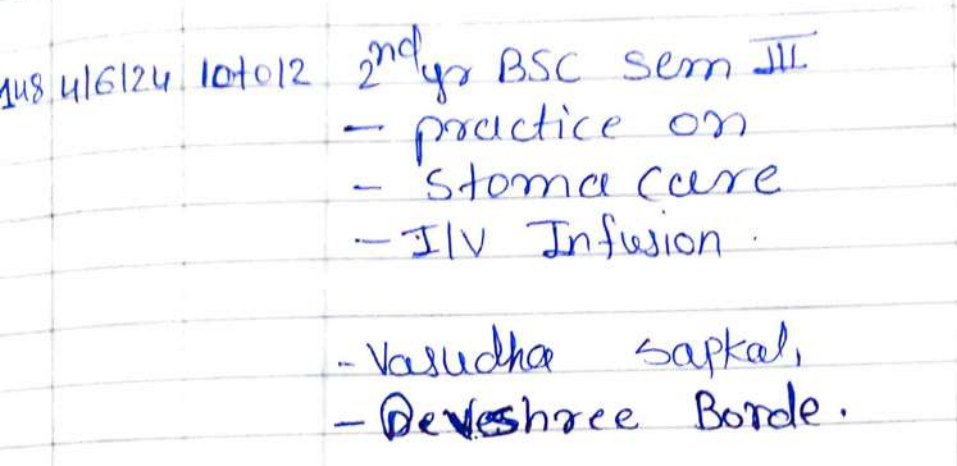 148 4/6/24 10to12 2nd yr BSC sem III
- practice on
- Stoma care
- I/V Infusion.
- Vasudha Sapkal,
- Deveshree Borde.